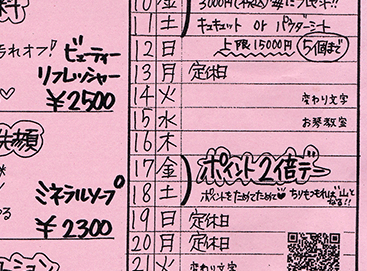 料
られオフ! ビューティー
リフレッシャー
¥2500
洗顔
ミネラルソープ
¥2300
10 金 3000円(税込)毎に
11 土 キュキュット or パウダーミート
12 日 上限15000円 5個まで
13 月 定休日
14 火 変わり文字
15 水 お琴教室
16 木
17 金 ポイント2倍デー
18 土 ポイントをためてためて♥ ちりもつもれば山となる!!
19 日 定休日
20 月 定休日
21 火 変わり文字